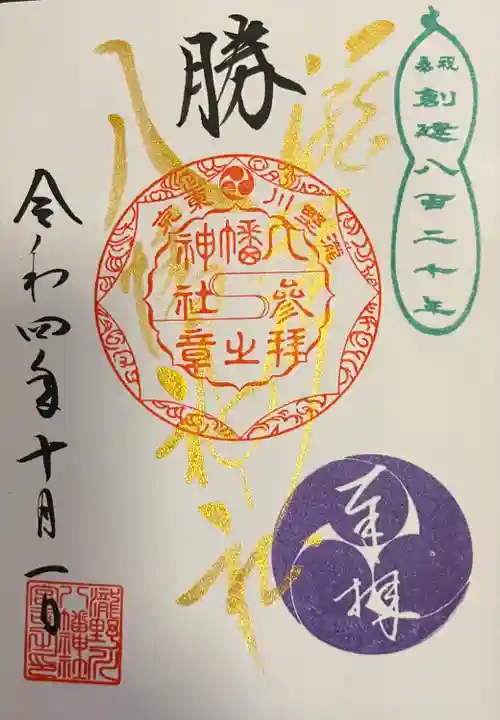 勝
奉祝
創建八百二十年
瀧野川
八幡神社
東京
瀧野川
八幡
神社
参拝
之章
奉拝
令和四年十月一日
瀧野川
八幡神社